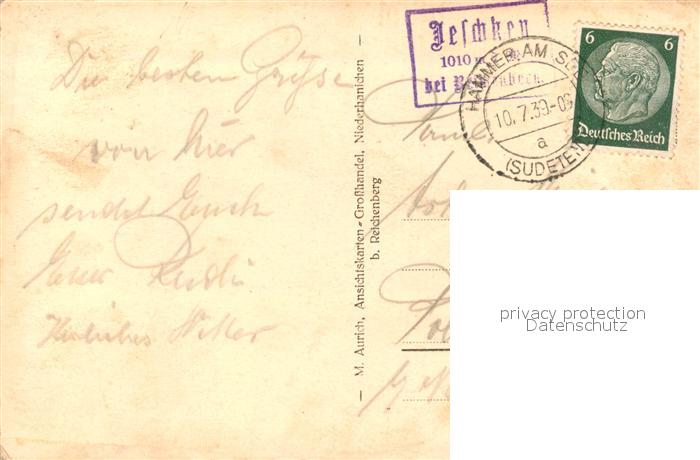 Die besten Grüsse
von hier
sendet Euch
Euer Rudi
Herrliches Wetter
— M. Aurich, Ansichtskarten-Großhandel, Niederhanichen —
b. Reichenberg
Jeschken
1010 m
bei
HAMMER AM
10.7.39
a
(SUDETEN
6 6
Deutsches Reich
privacy protection
Datenschutz